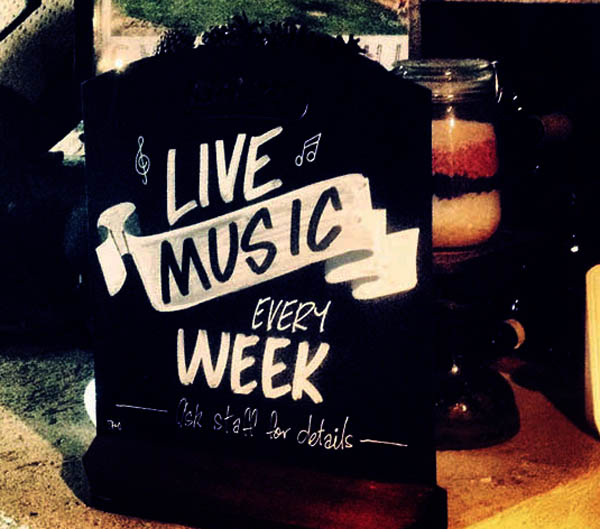 LIVE
MUSIC
EVERY
WEEK
Ask staff for details